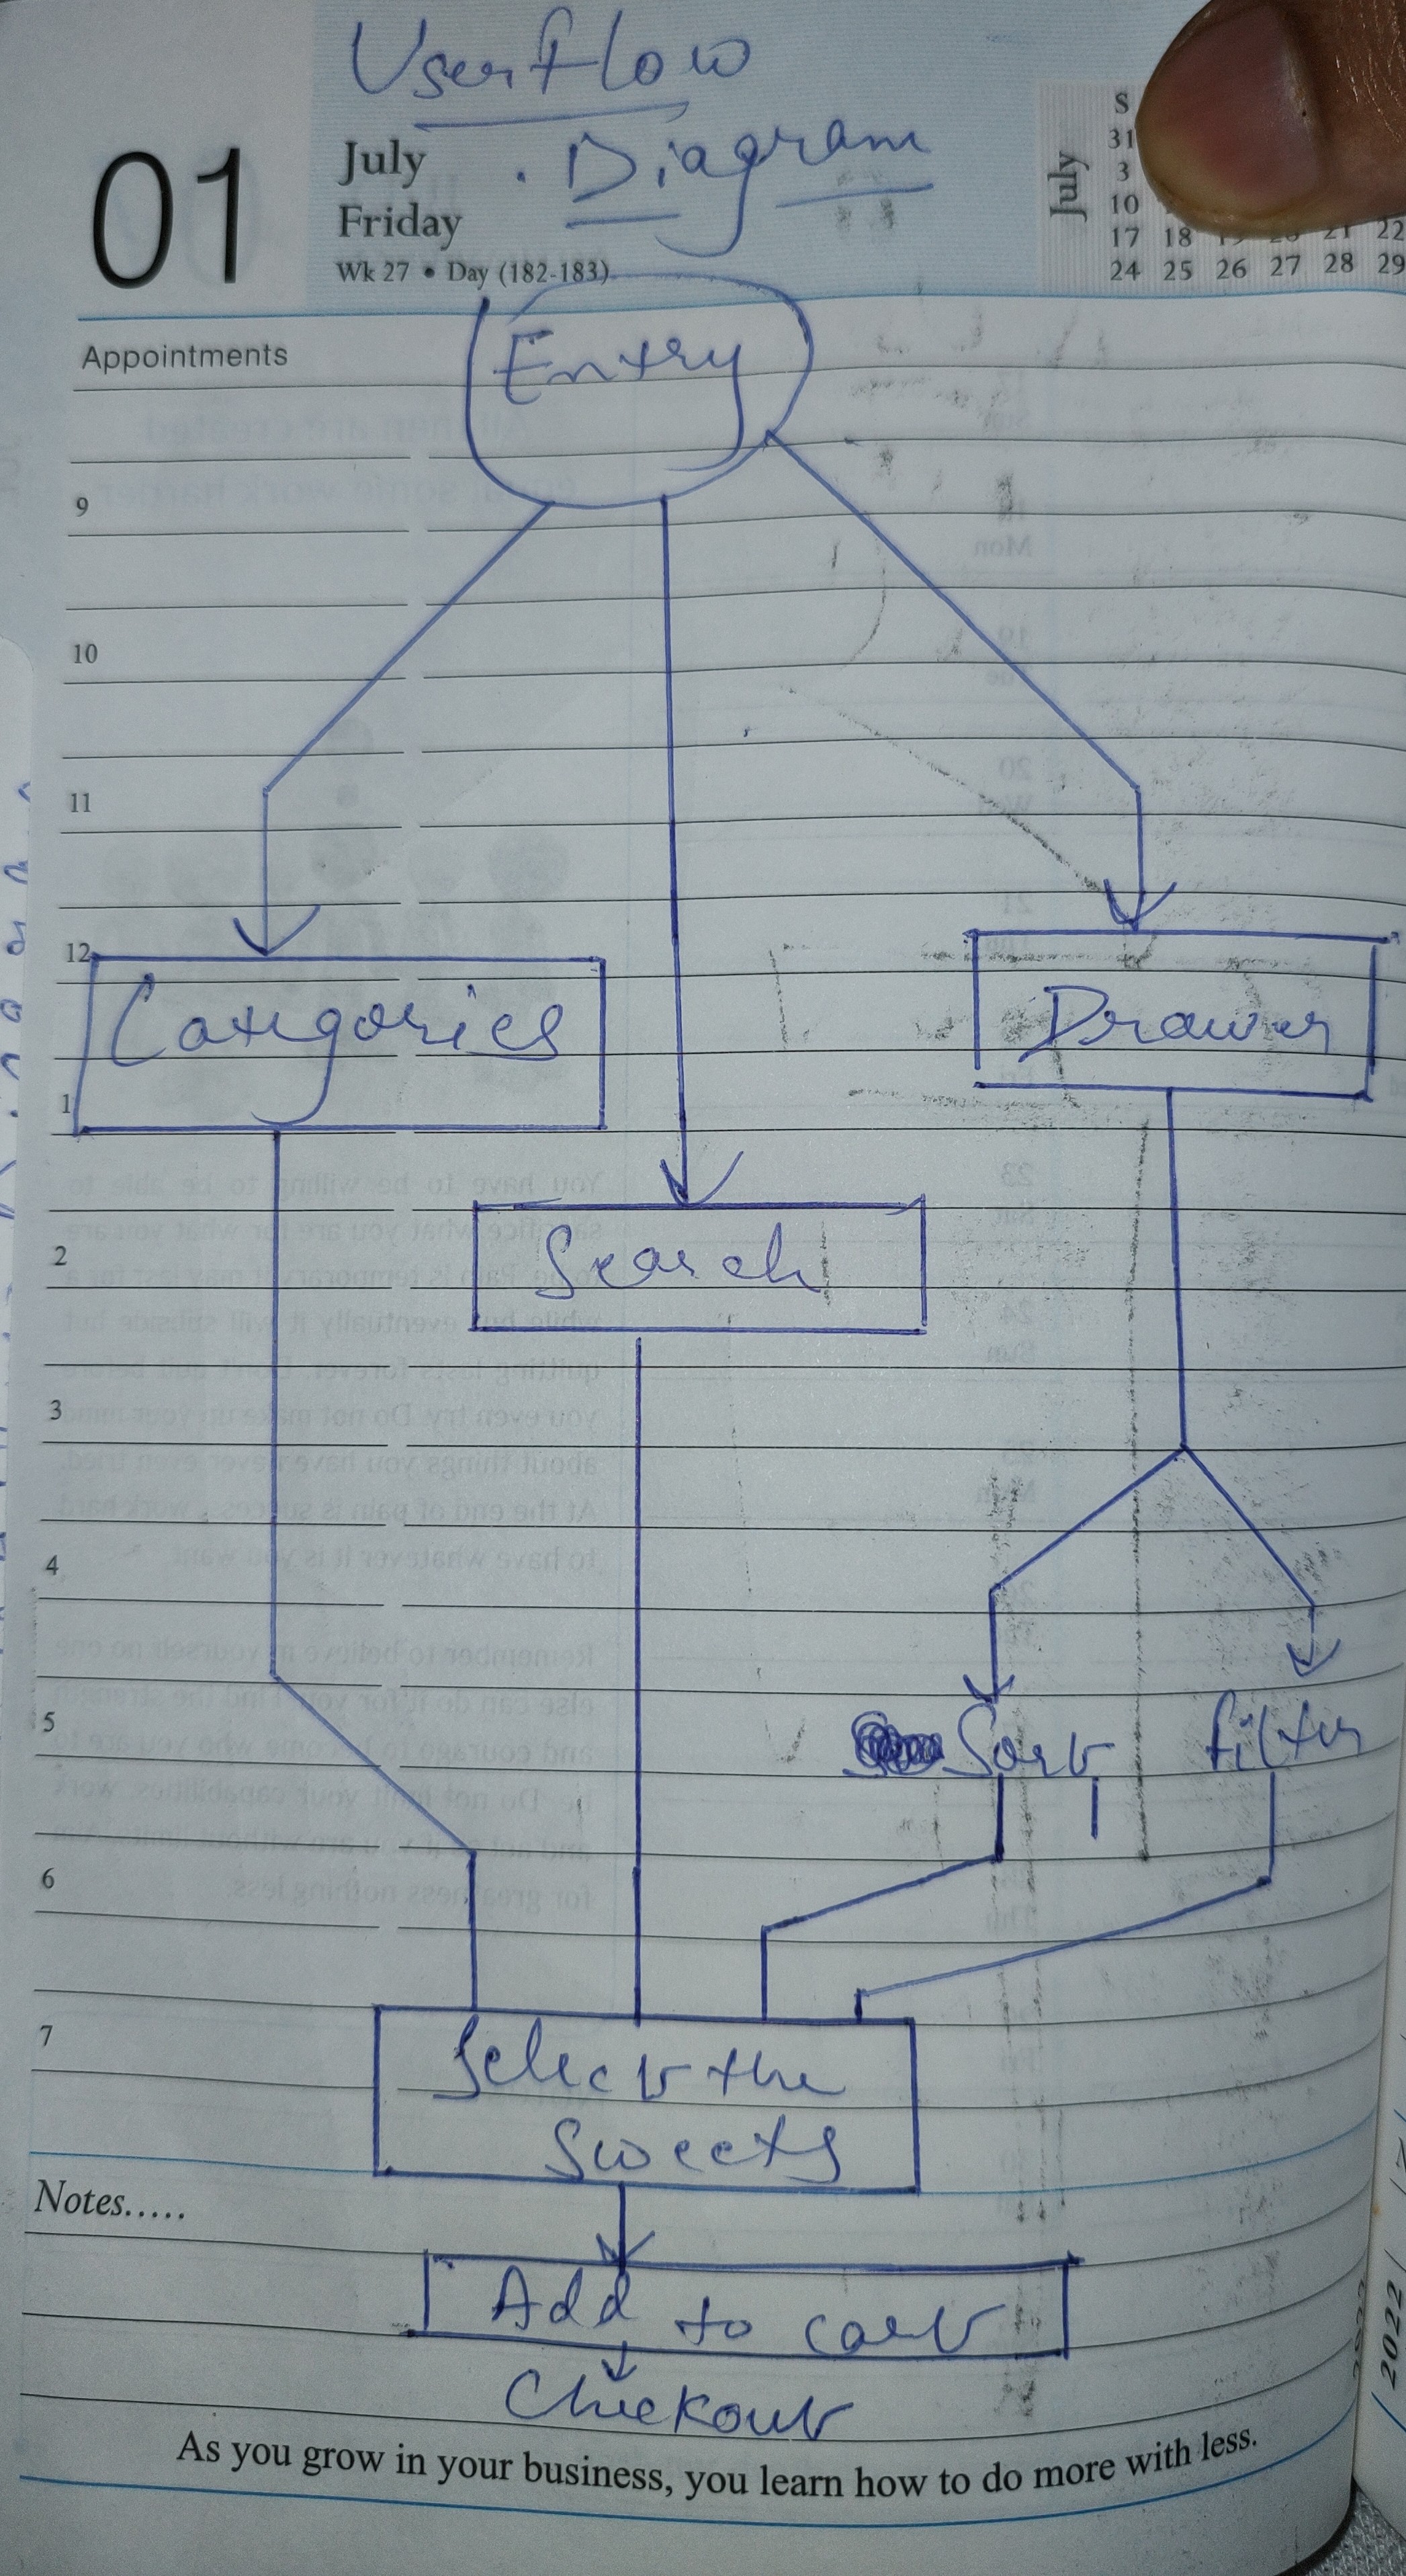 User flow
Diagram
01
July
Friday
Wk 27 • Day (182-183)
July
S
31
3
10
17 18 22
24 25 26 27 28 29
Appointments
Entry
9
10
11
12
Categories
Drawer
1
Search
2
3
4
5
Sort filter
6
7
Select the
Sweets
Notes.....
Add to cart
Checkout
As you grow in your business, you learn how to do more with less.
2022